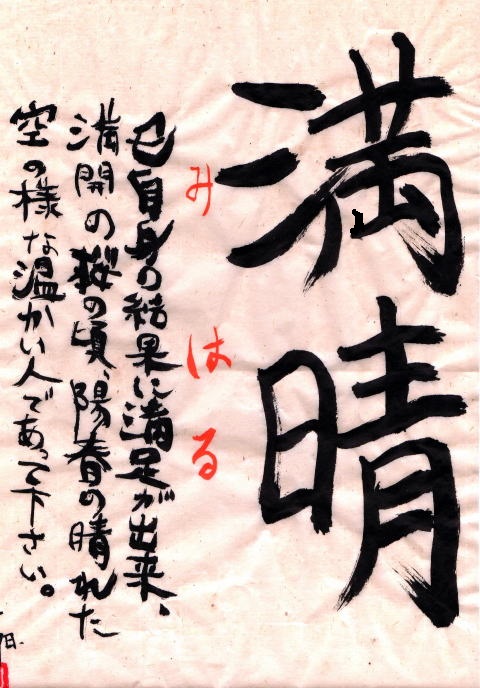 満晴
みはる
己自身の結果に満足が出来、
満開の桜の頃、陽春の晴れた
空の様な温かい人であって下さい。